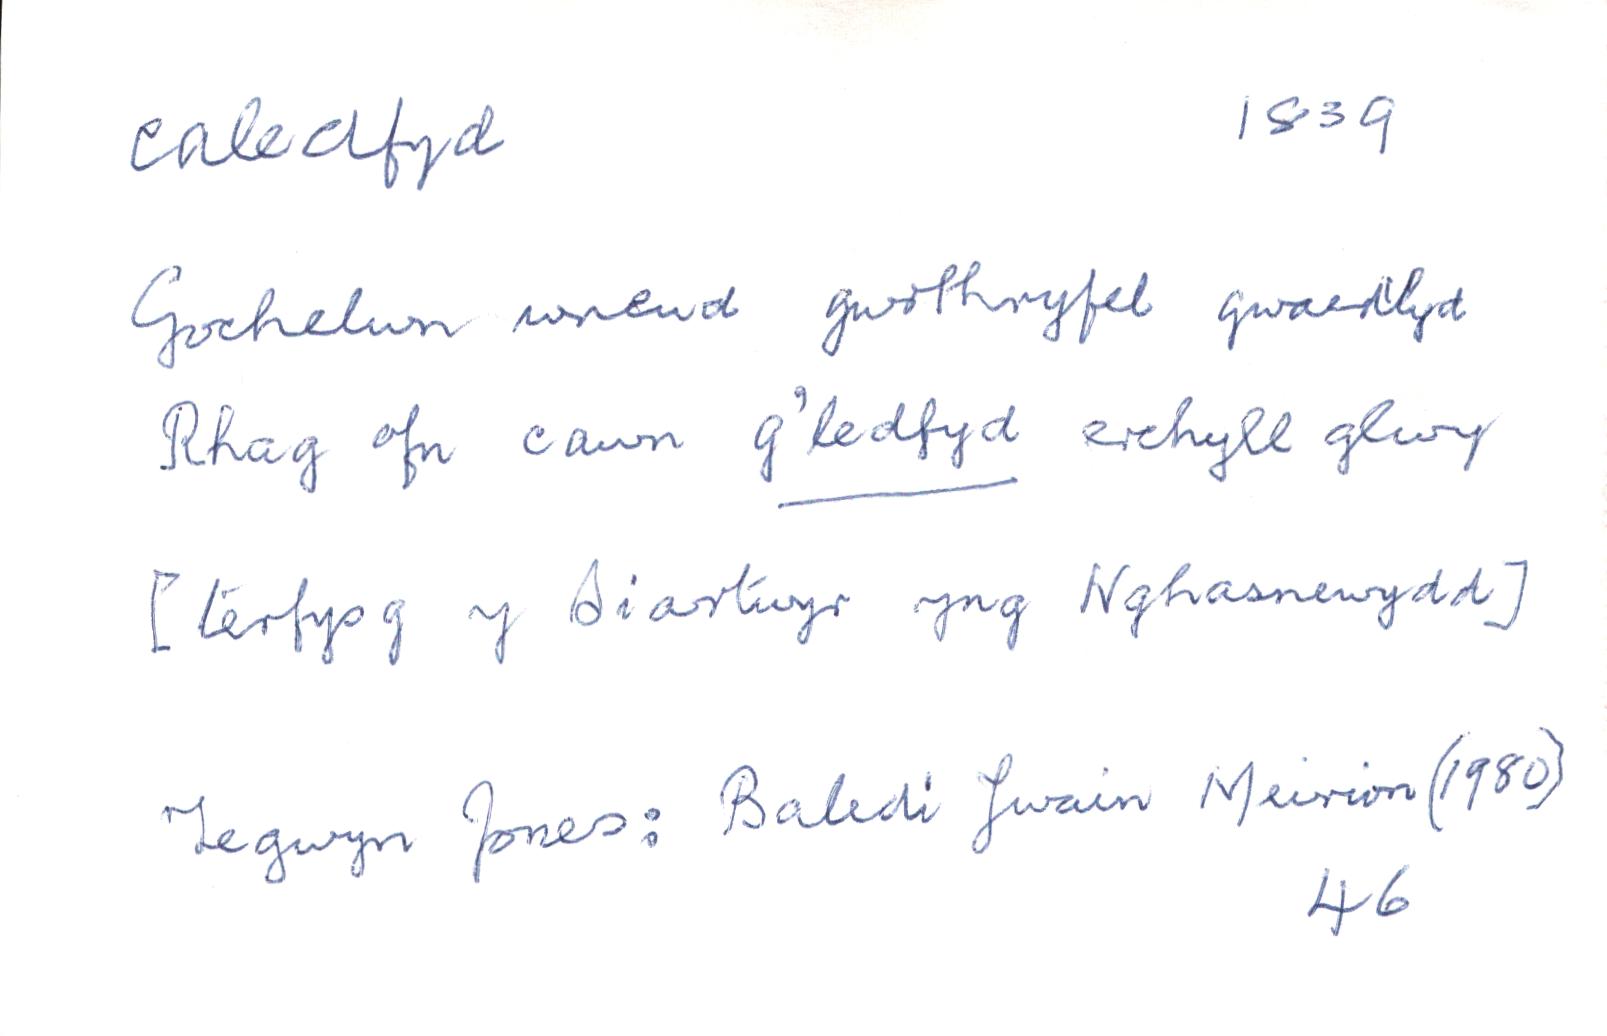 caledfyd 1839
Gochelwn wneud gwrthryfel gwaedlyd
Rhag ofn cawn g'ledfyd erchyll glwy
[terfysg y Siartwyr yng Nghasnewydd]
Tegwyn Jones: Baledi Ywain Meirion (1980)
46